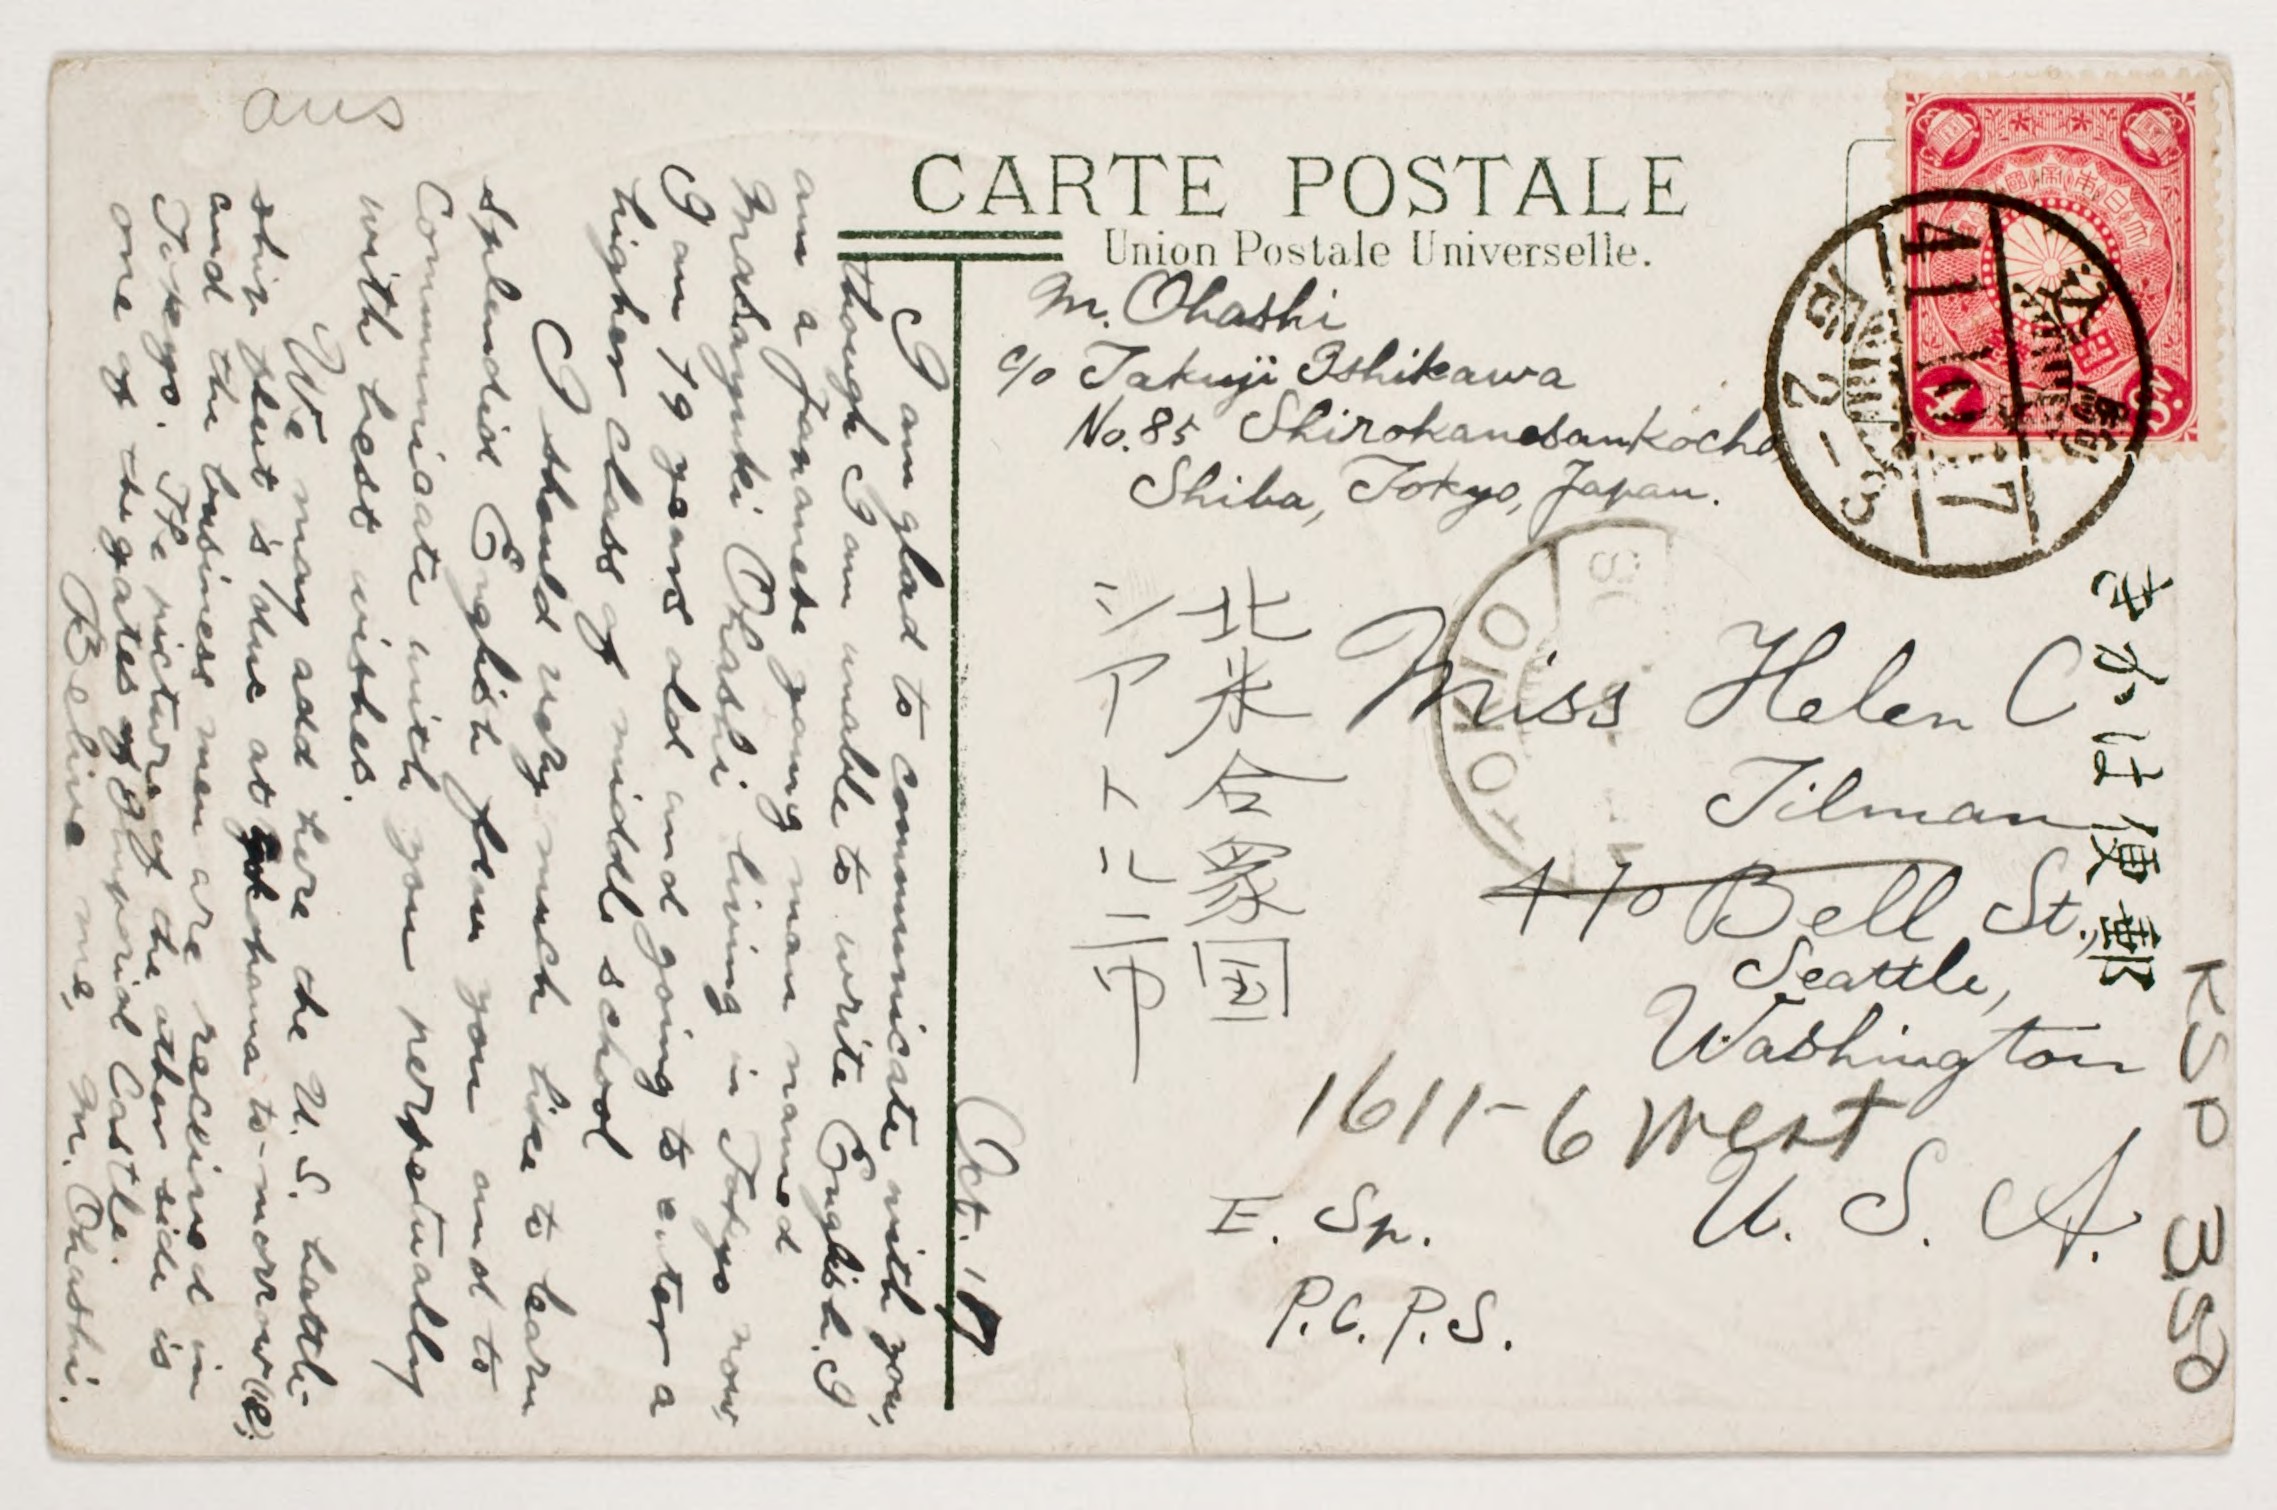 aus
CARTE POSTALE
Union Postale Universelle.
M. Ohashi
c/o Takuji Ishikawa
No. 85 Shirokanesankocho
Shiba, Tokyo, Japan.
Miss Helen C
Tilman
410 Bell St.,
Seattle,
Washington
1611-6 West
U. S. A.
E. Sp.
P.C.P.S.
北米合衆国
きかは便郵
KSP 3.50
41 10 17
TOKIO
Oct. 17
I am glad to communicate with you,
though I am unable to write English. I
am a Japanese young man named
Masayuki Ohashi living in Tokyo now.
I am 19 years old and going to enter a
higher class of middle school
I should very much like to learn
splendid English from you and to
Communicate with you perpetually
with best wishes.
We may add here the U. S. battle-
ship fleet is due at Yokohama to-morrow
and the business men are received in
Tokyo. The picture of the other side is
one of the gates of Imperial Castle.
Belive me, M. Ohashi.